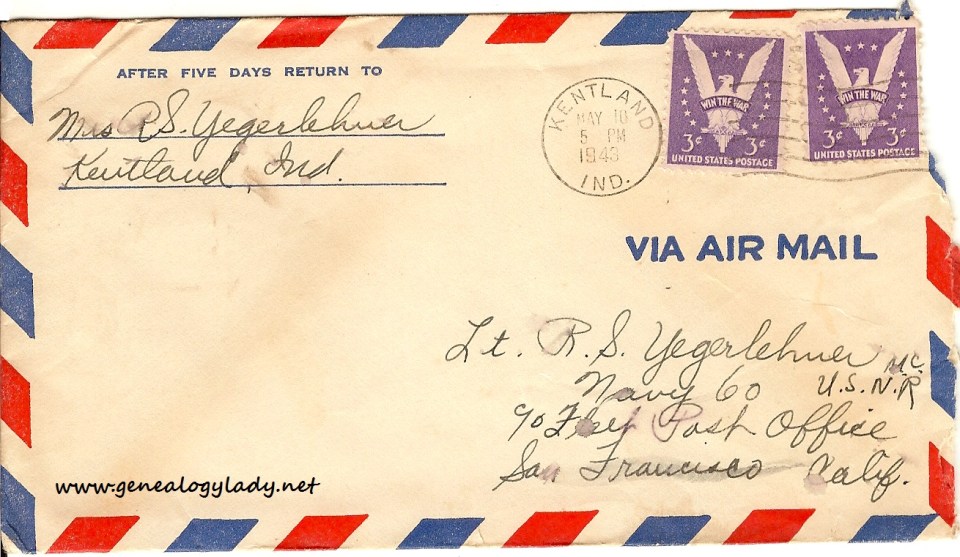 AFTER FIVE DAYS RETURN TO
Mrs R.S. Yegerlehner
Kentland, Ind.
KENTLAND
MAY 10
5 PM
1943
IND.
WIN THE WAR
3¢ 3¢
UNITED STATES POSTAGE
WIN THE WAR
3¢ 3¢
UNITED STATES POSTAGE
VIA AIR MAIL
Lt. R. S. Yegerlehner M.C.
Navy 60 U.S.N.R
℅ Fleet Post Office
San Francisco Calif.
www.genealogylady.net